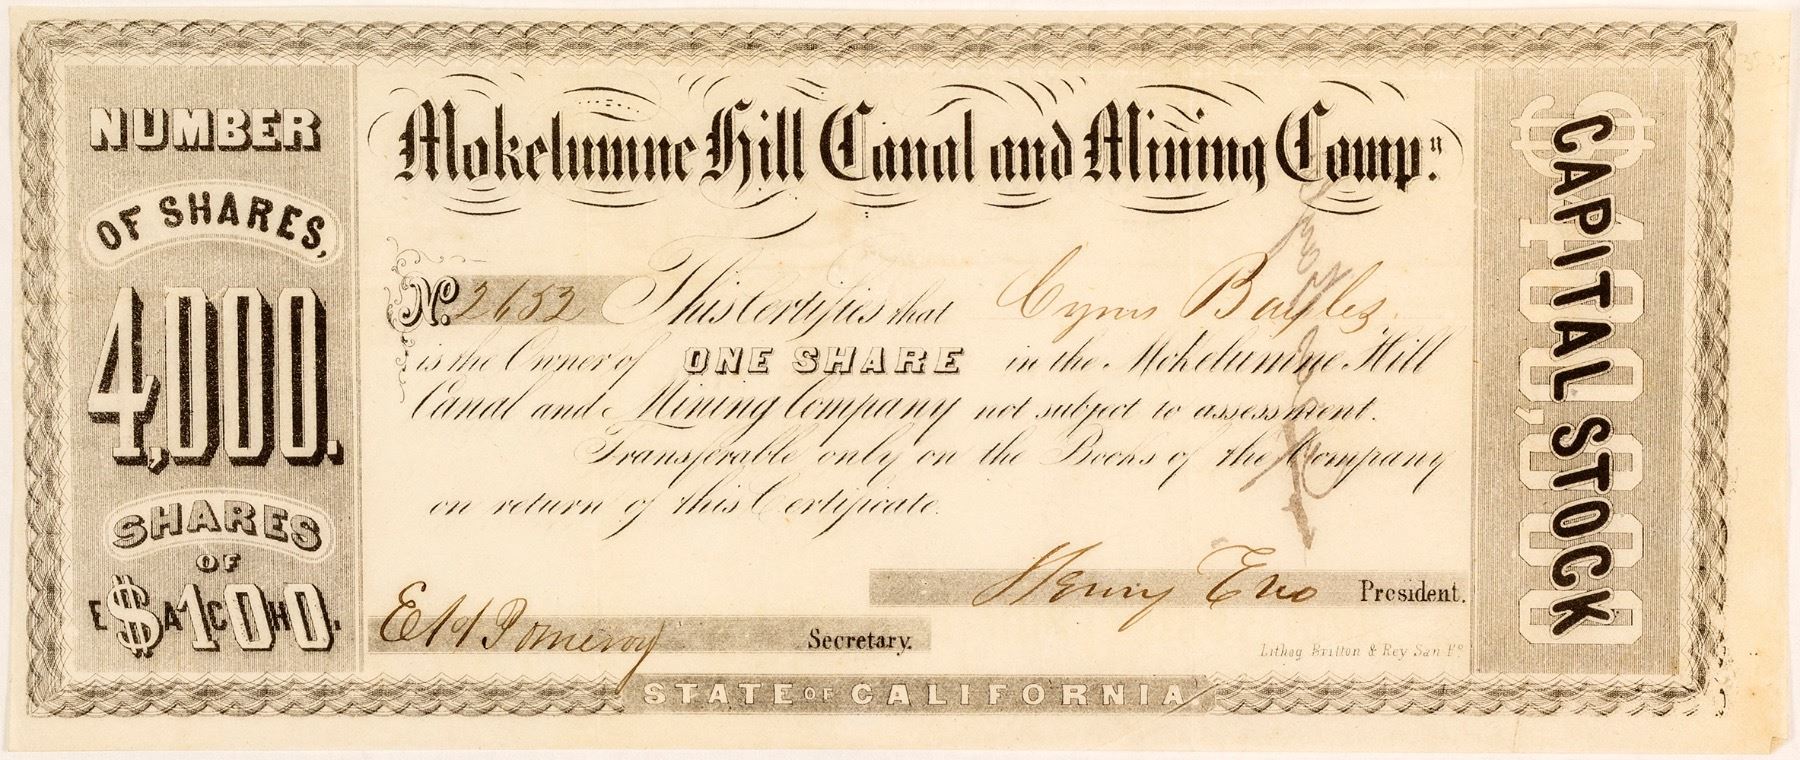 NUMBER
OF SHARES,
4,000.
SHARES
OF
$100.
EACH
Mokelumne Hill Canal and Mining Compy.
No. 2653 This Certifies that Cyrus Bayles
is the Owner of ONE SHARE in the Mokelumne Hill
Canal and Mining Company not subject to assessment.
Transferable only on the Books of the Company
on return of this Certificate.
Henry Eno President.
Pomeroy Secretary.
Lithog Britton & Rey San Fo
STATE OF CALIFORNIA.
CAPITAL STOCK
$400,000